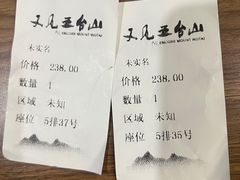 又见五台山
ENCORE MOUNT WUTAI
未实名
价格 238.00
数量 1
区域 未知
座位 5排37号
又见五台山
ENCORE MOUNT WUTAI
未实名
价格 238.00
数量 1
区域 未知
座位 5排35号